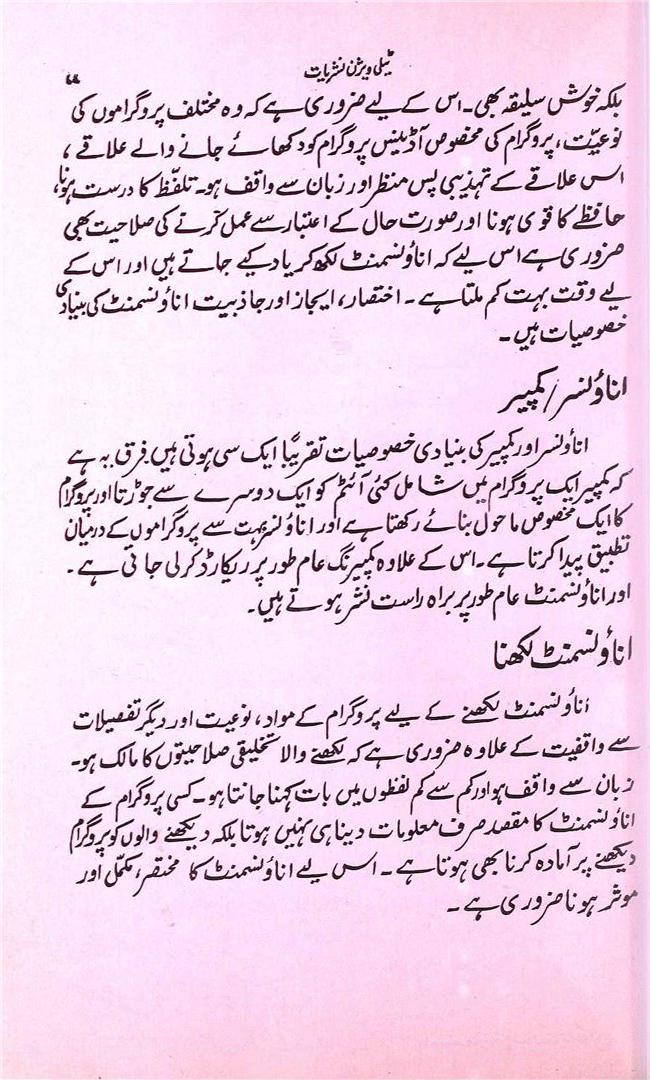 ٹیلی ویژن نشریات
بلکہ خوش سلیقہ بھی۔ اس کے لیے ضروری ہے کہ وہ مختلف پروگراموں کی
نوعیّت، پروگرام کی مخصوص آڈینس پروگرام کو دکھائے جانے والے علاقے،
اس علاقے کے تہذیبی پس منظر اور زبان سے واقف ہو۔ تلفّظ کا درست ہونا،
حافظے کا قوی ہونا اور صورت حال کے اعتبار سے عمل کرنے کی صلاحیت بھی
ضروری ہے اس لیے کہ اناؤنسمنٹ لکھ کر یاد کیے جاتے ہیں اور اس کے
لیے وقت بہت کم ملتا ہے۔ اختصار، ایجاز اور جاذبیت اناؤنسمنٹ کی بنیادی
خصوصیات ہیں۔
اناؤنسر/کمپیر
اناؤنسر اور کمپیر کی بنیادی خصوصیات تقریباً ایک سی ہوتی ہیں فرق یہ ہے
کہ کمپیر ایک پروگرام میں شامل کئی آئٹم کو ایک دوسرے سے جوڑتا اور پروگرام
کا ایک مخصوص ماحول بنائے رکھتا ہے اور اناؤنسر بہت سے پروگراموں کے درمیان
تطبیق پیدا کرتا ہے۔ اس کے علاوہ کمپیرنگ عام طور پر ریکارڈ کر لی جاتی ہے۔
اور اناؤنسمنٹ عام طور پر براہ راست نشر ہوتے ہیں۔
اناؤنسمنٹ لکھنا
اناؤنسمنٹ لکھنے کے لیے پروگرام کے مواد، نوعیت اور دیگر تفصیلات
سے واقفیت کے علاوہ ضروری ہے کہ لکھنے والا تخلیقی صلاحیتوں کا مالک ہو۔
زبان سے واقف ہو اور کم سے کم لفظوں میں بات کہنا جانتا ہو۔ کسی پروگرام کے
اناؤنسمنٹ کا مقصد صرف معلومات دینا ہی نہیں ہوتا بلکہ دیکھنے والوں کو پروگرام
دیکھنے پر آمادہ کرنا بھی ہوتا ہے۔ اس لیے اناؤنسمنٹ کا مختصر، مکمّل اور
موثر ہونا ضروری ہے۔